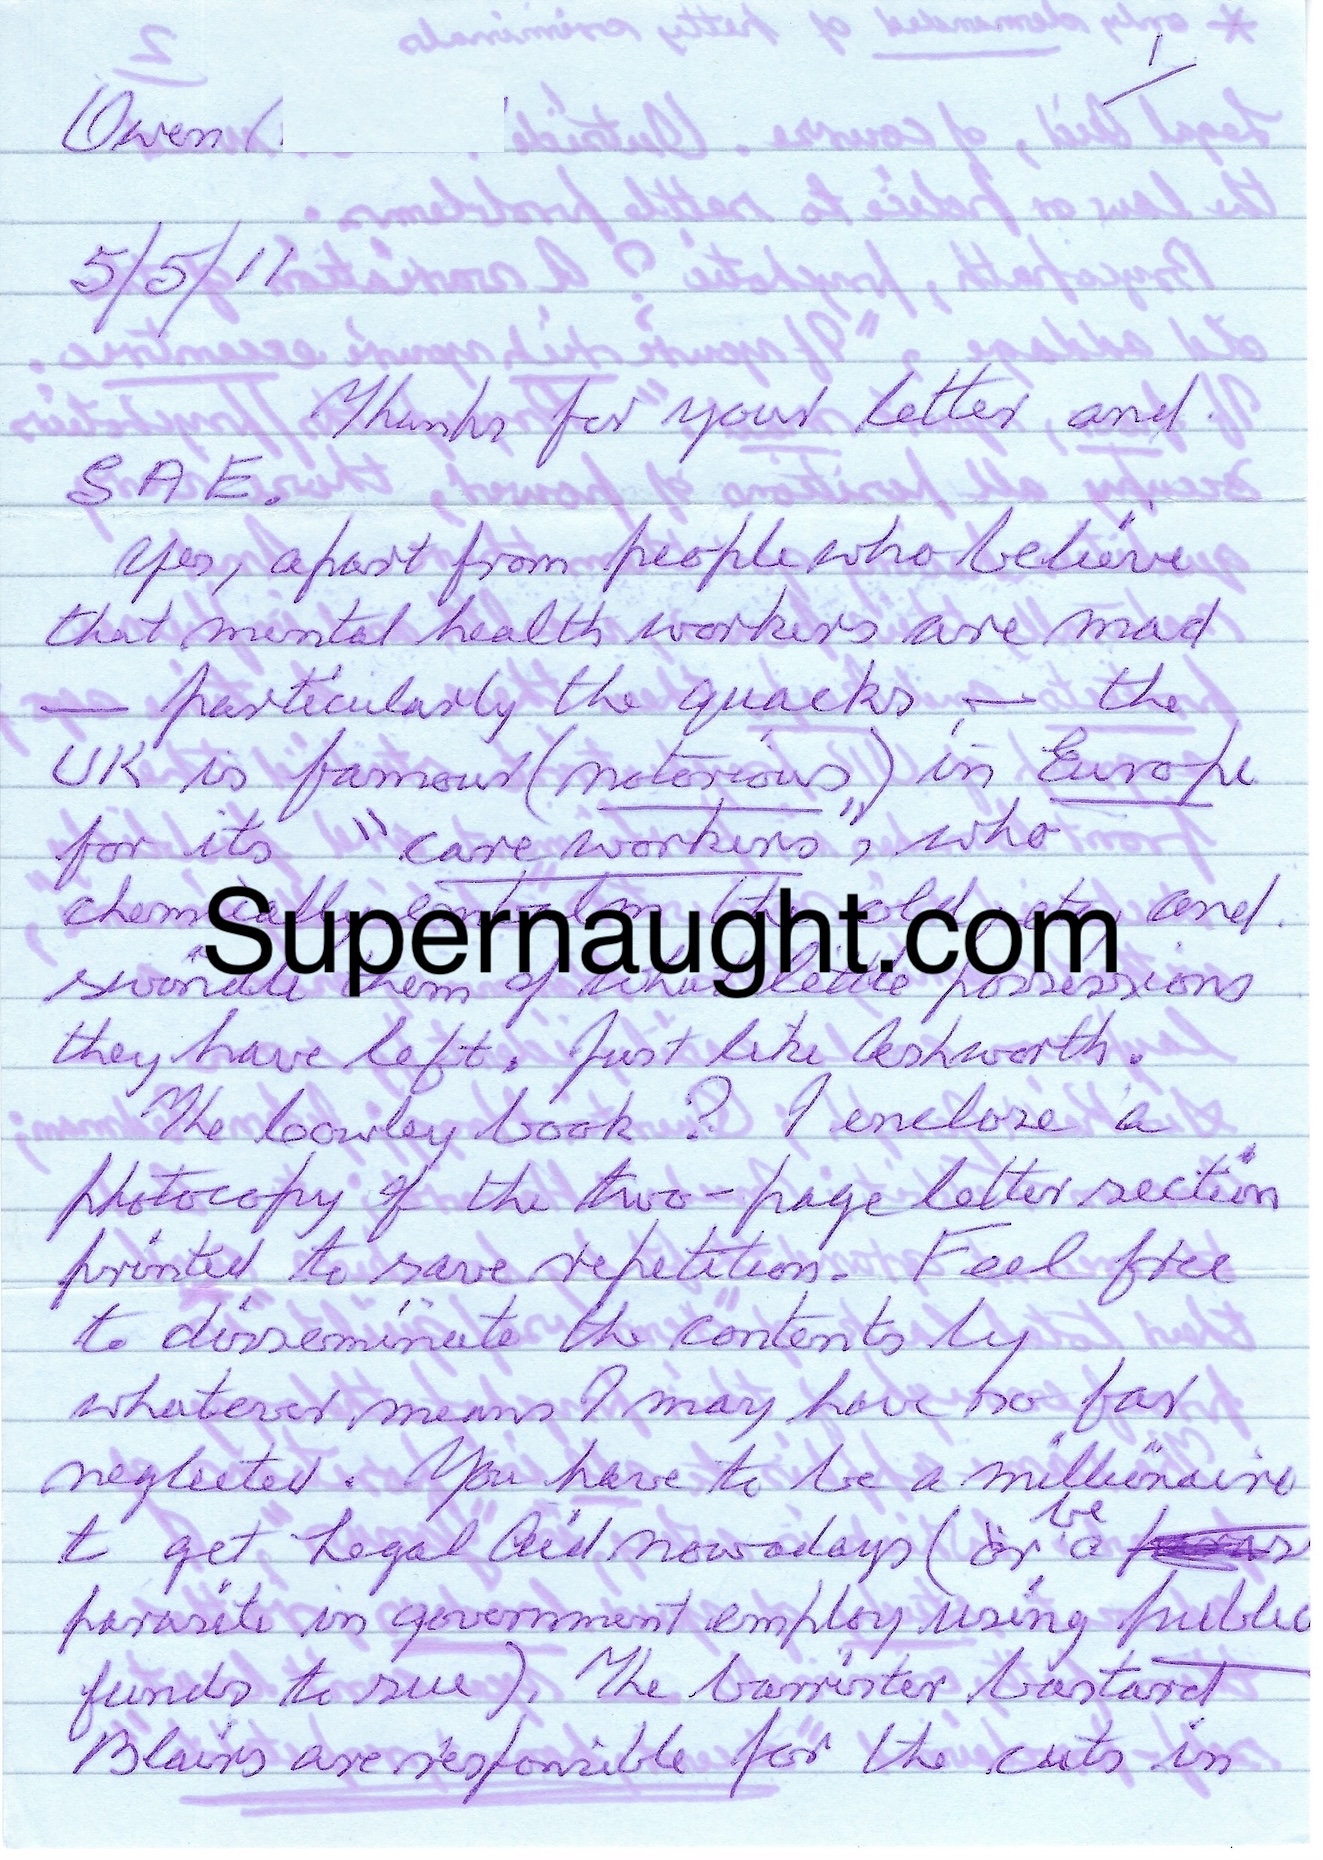 1
Owen
5/5/11
Thanks for your letter and
SAE.
Yes, apart from people who believe
that mental health workers are mad
— particularly the quacks — the
UK is famous (notorious) in Europe
for its "care workers", who
chemically the old, etc, and
swindle them of what little possessions
they have left. Just like Ashworth.
The Cowley book? I enclose a
photocopy of the two-page letter section
printed to save repetition. Feel free
to disseminate the contents by
whatever means I may have so far
neglected. You have to be a millionaire
t get Legal Aid nowadays (or be a
parasite in government employ using public
funds to sue). The barrister bastard
Blairs are responsible for the cuts in
Supernaught.com